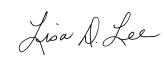 Lisa D. Lee